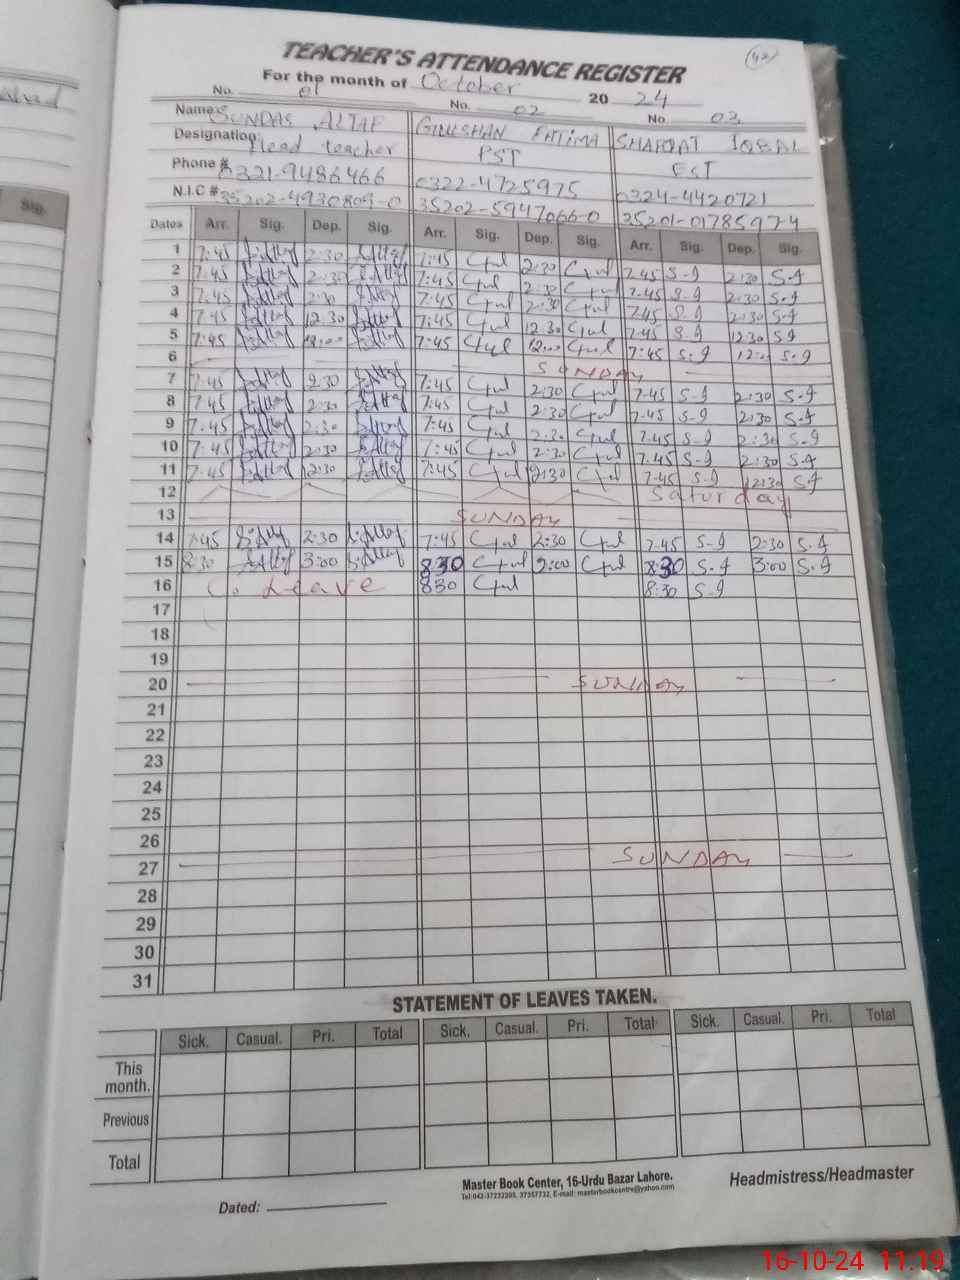 42
TEACHER'S ATTENDANCE REGISTER
For the month of October 2024
No. 01 No. 02 No 03
Name SUNDAS ALTAF GULLSHAN FATIMA SHAFQAT IQBAL
Designation Head teacher PST EST
Phone # 0321-9486466 0322-4725975 0324-4420721
N.I.C # 35202-4930809-0 35202-5947066-0 35201-0178597-4
Dates Arr. Sig. Dep. Sig. Arr. Sig. Dep. Sig. Arr. Sig. Dep. Sig.
1 7:45 2:30 7:45 Gul 2:30 Gul 7.45 S.I 2:30 S.I
2 7:45 2:30 7:45 Gul 2:30 Gul 7.45 S.I 2:30 S.I
3 7:45 2:30 7:45 Gul 2:30 Gul 7.45 S.I 2:30 S.I
4 7:45 12:30 7:45 Gul 12:30 Gul 7:45 S.I 12:30 S.I
5 7:45 7:45 Gul 12:00 Gul 7:45 S.I S.I
6 SUNDAY
7 7:45 2:30 7:45 Gul 2:30 Gul 7.45 S.I 2:30 S.I
8 7:45 2:30 7:45 Gul 2:30 Gul 7.45 S.I 2:30 S.I
9 7:45 2:30 7:45 Gul 2:30 Gul 7.45 S.I 2:30 S.I
10 7:45 2:30 7:45 Gul 2:30 Gul 7.45 S.I 2:30 S.I
11 7:45 12:30 7:45 Gul 12:30 Gul 7.45 S.I 12:30 S.I
12 Saturday
13 SUNDAY
14 7:45 2:30 7:45 Gul 2:30 Gul 7.45 S.I 2:30 S.I
15 8:30 3:00 8:30 Gul Gul 8:30 S.I 3:00 S.I
16 C. Leave 830 Gul 8:30 S.I
17
18
19
20 SUNDAY
21
22
23
24
25
26
27 SUNDAY
28
29
30
31
STATEMENT OF LEAVES TAKEN.
Sick. Casual. Pri. Total Sick. Casual. Pri. Total Sick. Casual. Pri. Total
This month.
Previous
Total
Master Book Center, 16-Urdu Bazar Lahore.
Tel:042-37232205, 37357732, E-mail: masterbookcentre@yahoo.com
Headmistress/Headmaster
Dated:
Sig.
16-10-24 11:19